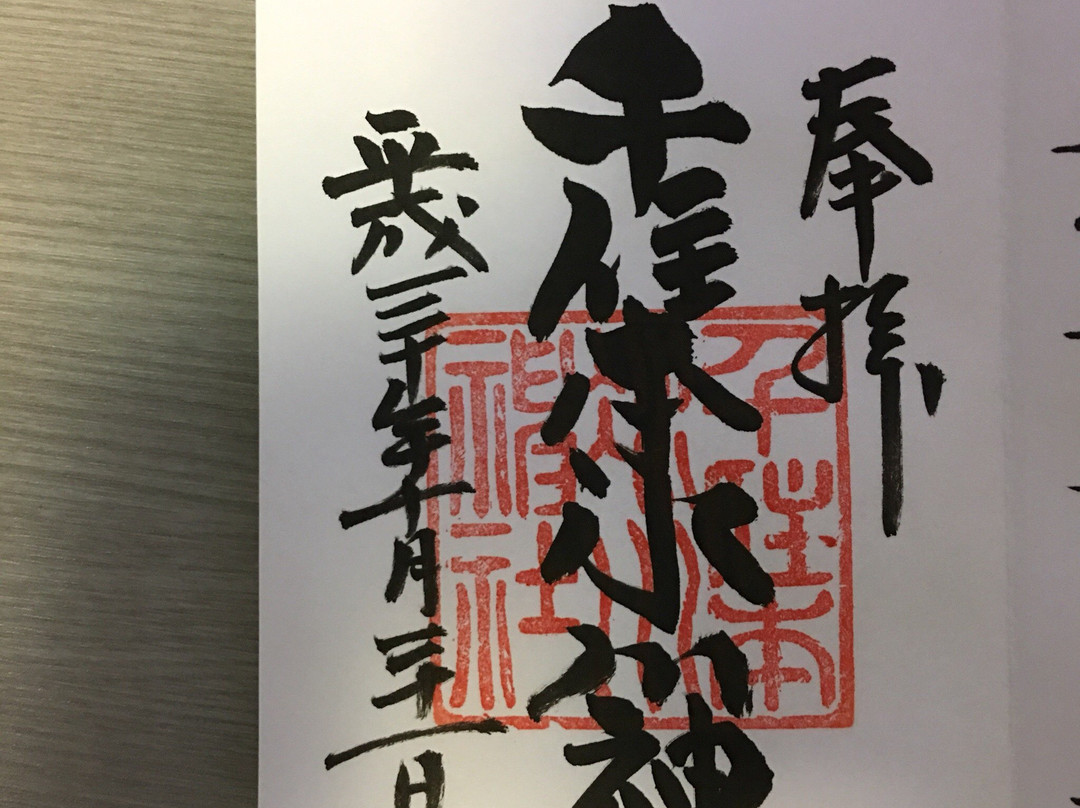 奉拝
千住本氷川神
平成三十年十月三十一日
千住本
氷川
神社